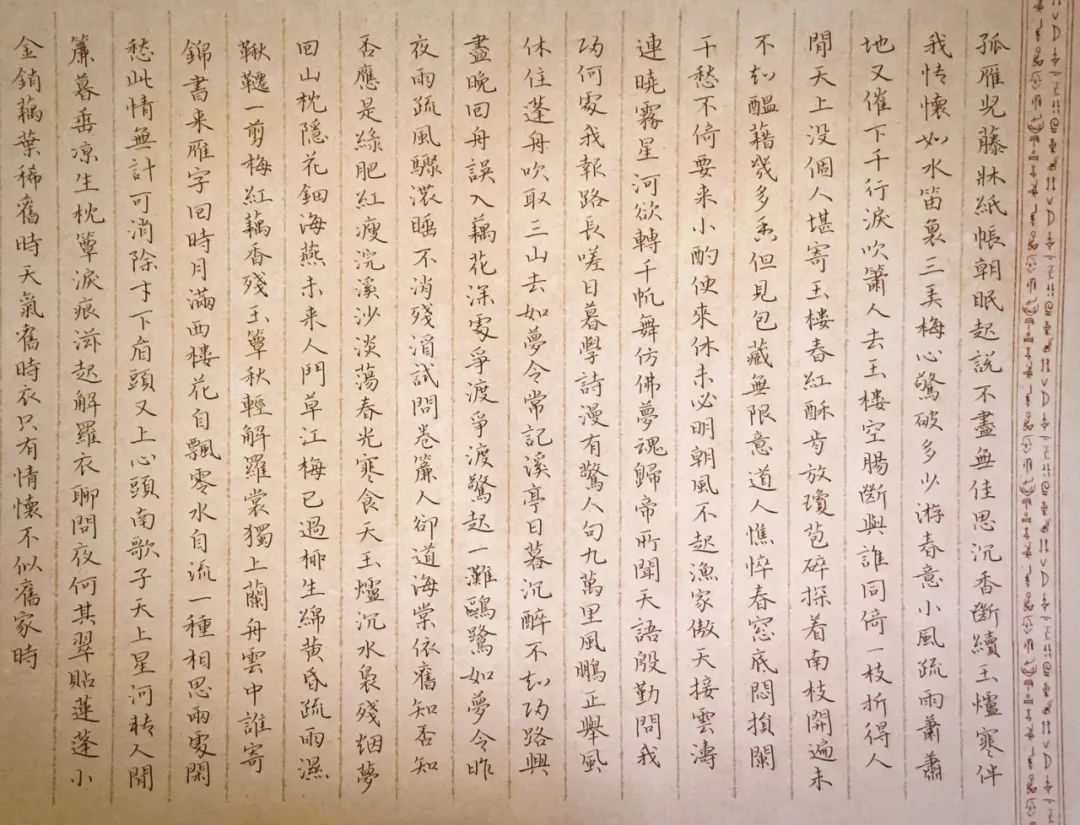 孤雁兒藤牀紙帳朝眠起說不盡無佳思沉香斷續玉爐寒伴
我情懷如水笛裏三美梅心驚破多少游春意小風疏雨蕭蕭
地又催下千行淚吹簫人去玉樓空腸斷與誰同倚一枝折得人
間天上没個人堪寄玉樓春紅酥肯放瓊苞碎探着南枝開遍未
不知醖藉幾多香但見包藏無限意道人憔悴春窓底悶損闌
干愁不倚要來小酌便來休未必明朝風不起漁家傲天接雲濤
連曉霧星河欲轉千帆舞仿佛夢魂歸帝所聞天語殷勤問我
歸何處我報路長嗟日暮學詩漫有驚人句九萬里風鵬正舉風
休住蓬舟吹取三山去如夢令常記溪亭日暮沉醉不知歸路興
盡晚回舟誤入藕花深處爭渡爭渡驚起一灘鷗鷺如夢令昨
夜雨疏風驟濃睡不消殘酒試問卷簾人卻道海棠依舊知否知
否應是綠肥紅瘦浣溪沙淡蕩春光寒食天玉爐沉水裊殘烟夢
回山枕隱花鈿海燕未来人鬥草江梅已過柳生綿黄昏疏雨濕
鞦韆一剪梅紅藕香殘玉簟秋輕解羅裳獨上蘭舟雲中誰寄
錦書来雁字回時月滿西樓花自飄零水自流一種相思兩處閑
愁此情無計可消除才下眉頭又上心頭南歌子天上星河轉人間
簾幕垂凉生枕簟淚痕滋起解羅衣聊問夜何其翠貼蓮蓬小
金銷藕葉稀舊時天氣舊時衣只有情懷不似舊家時